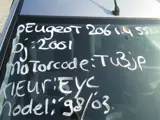 PEUGEOT 206 1.4 55kw
Bj: 2001
MOTORCODE: TU3JP
KLEUR: EYC
Model: 98/03.